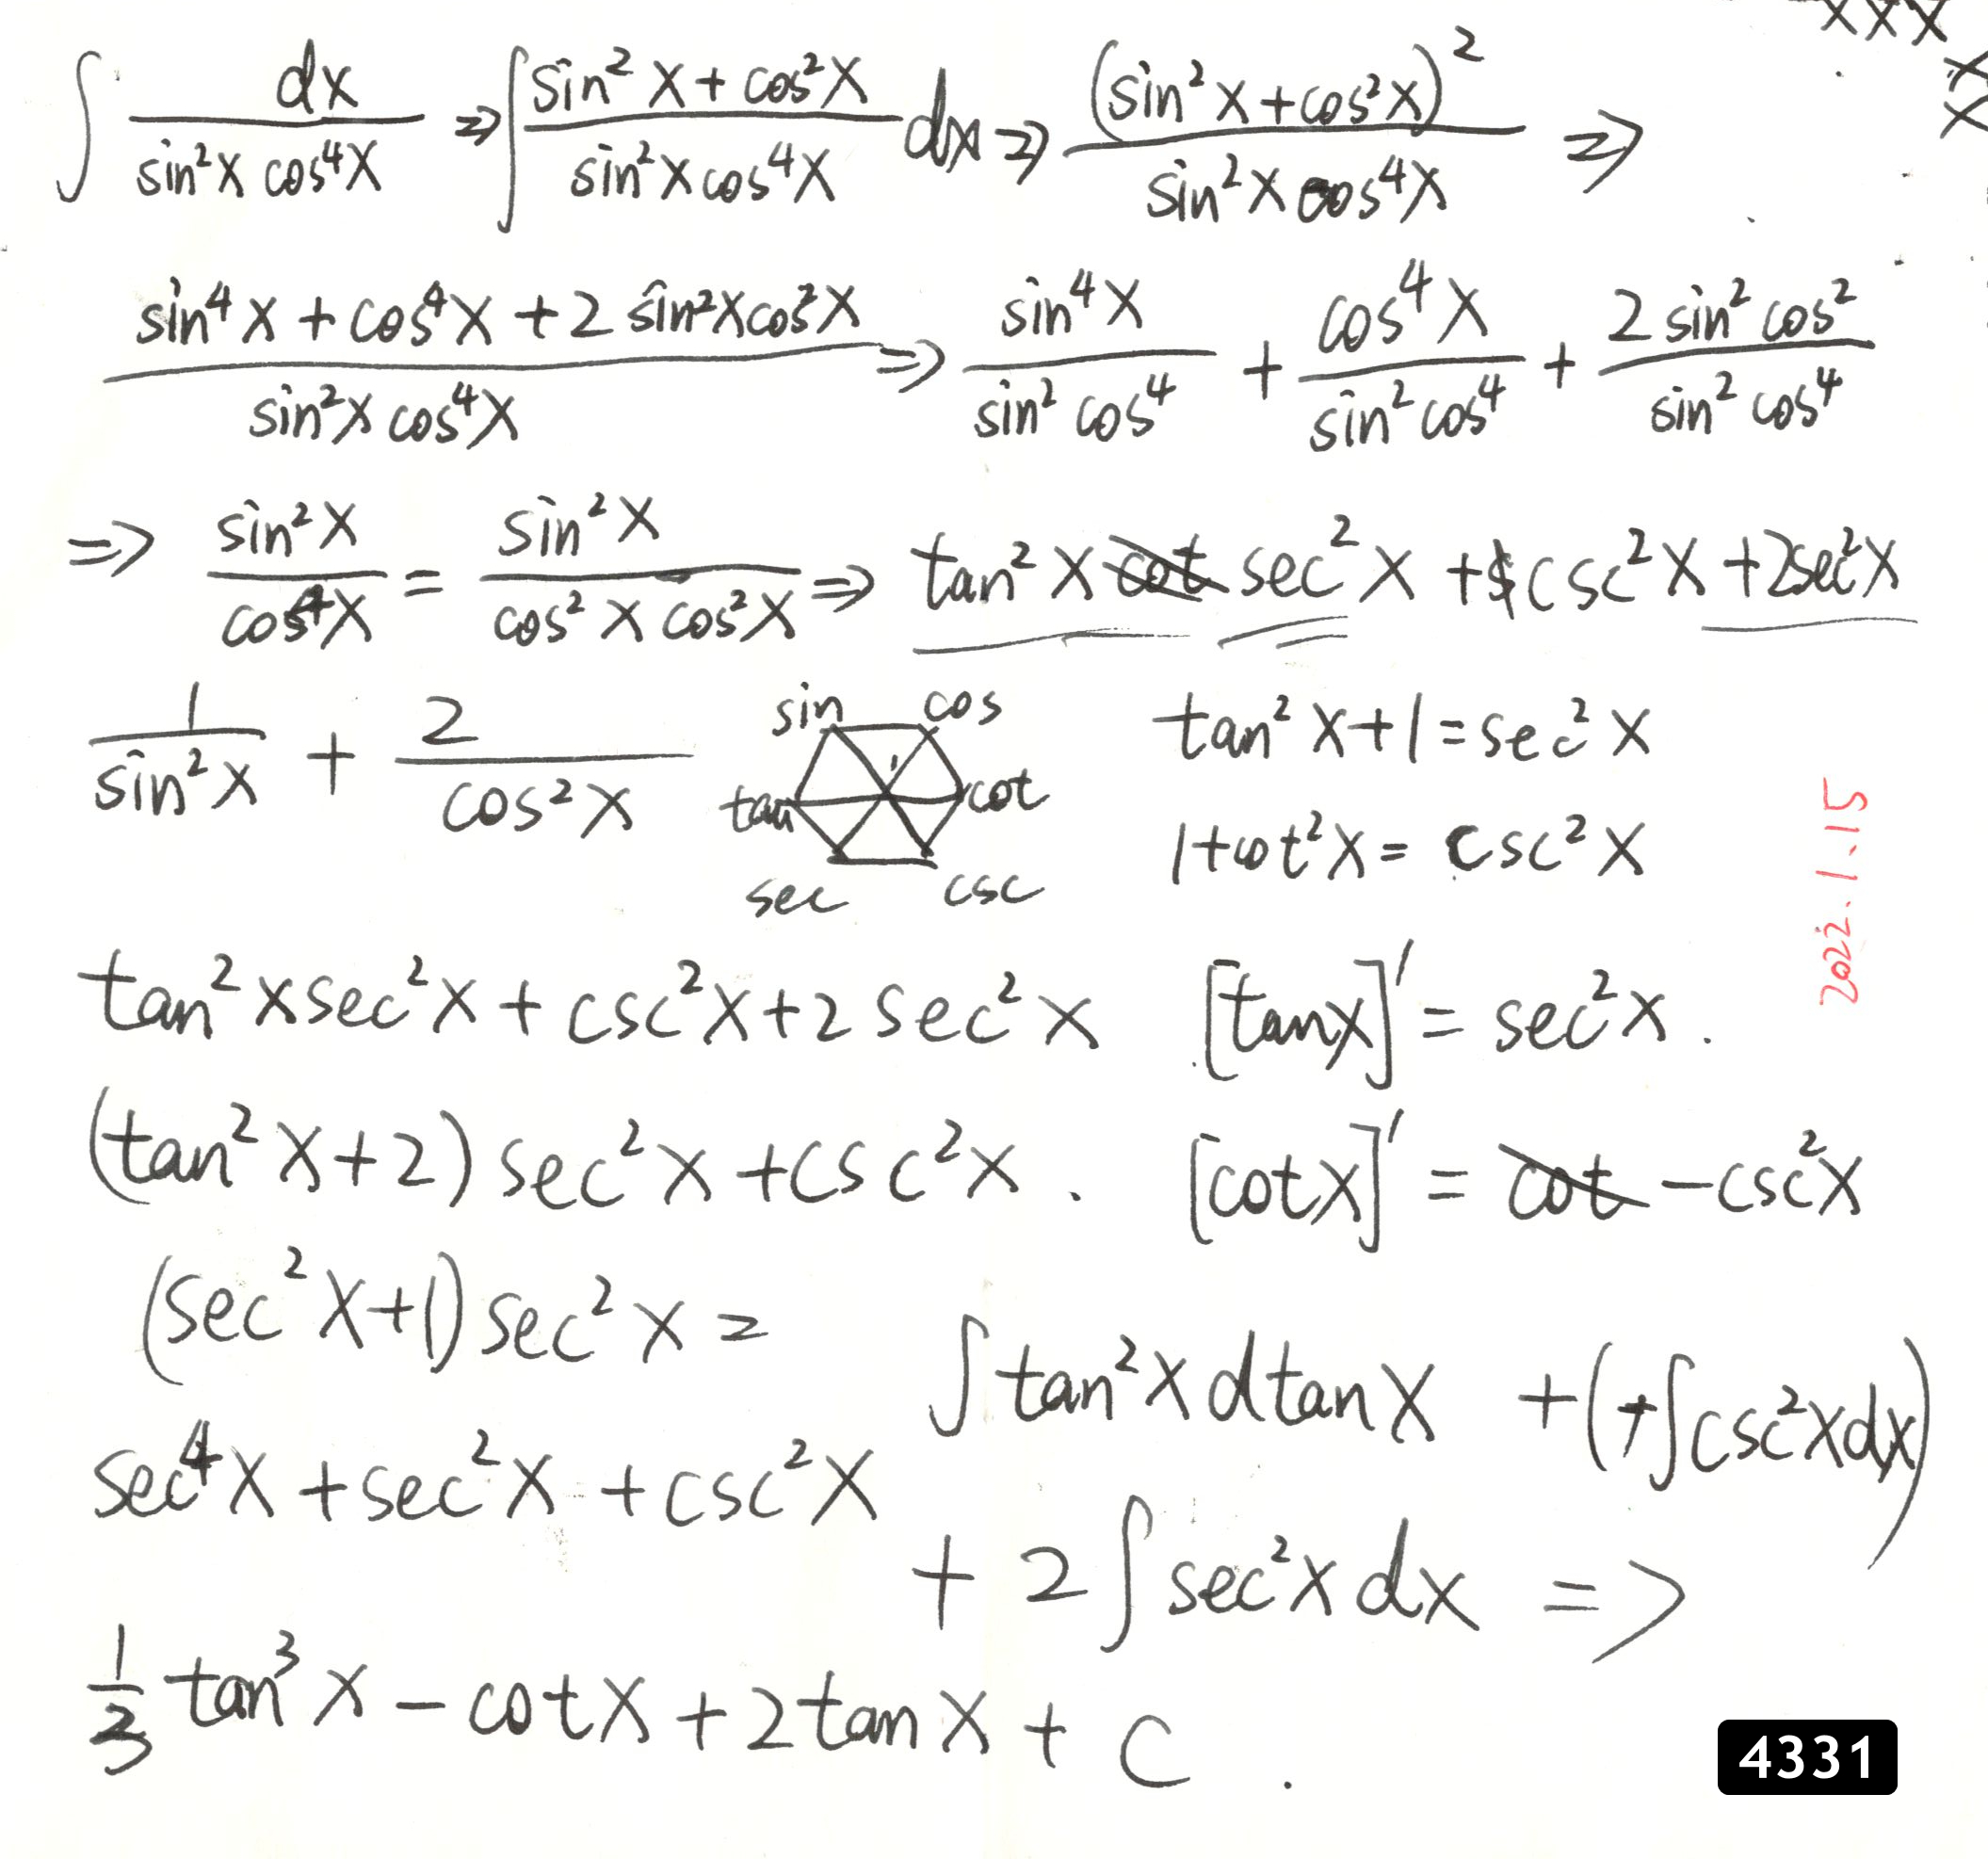 XXX
∫ dx / sin²x cos⁴x ⇒ ∫ sin²x + cos²x / sin²x cos⁴x dx ⇒ (sin²x + cos²x)² / sin²x cos⁴x ⇒
sin⁴x + cos⁴x + 2 sin²x cos²x / sin²x cos⁴x ⇒ sin⁴x / sin² cos⁴ + cos⁴x / sin² cos⁴ + 2 sin² cos² / sin² cos⁴
⇒ sin²x / cos⁴x = sin²x / cos²x cos²x ⇒ tan²x cot sec²x + csc²x + 2sec²x
1 / sin²x + 2 / cos²x
sin cos
tan 1 cot
sec csc
tan²x + 1 = sec²x
1 + cot²x = csc²x
2022.1.15
tan²x sec²x + csc²x + 2 sec²x [tanx]' = sec²x.
(tan²x + 2) sec²x + csc²x. [cotx]' = cot -csc²x
(sec²x + 1) sec²x =
∫ tan²x d tanx + (+∫csc²x dx)
sec⁴x + sec²x + csc²x
+ 2 ∫ sec²x dx =>
1/3 tan³x - cotx + 2 tanx + C.
4331